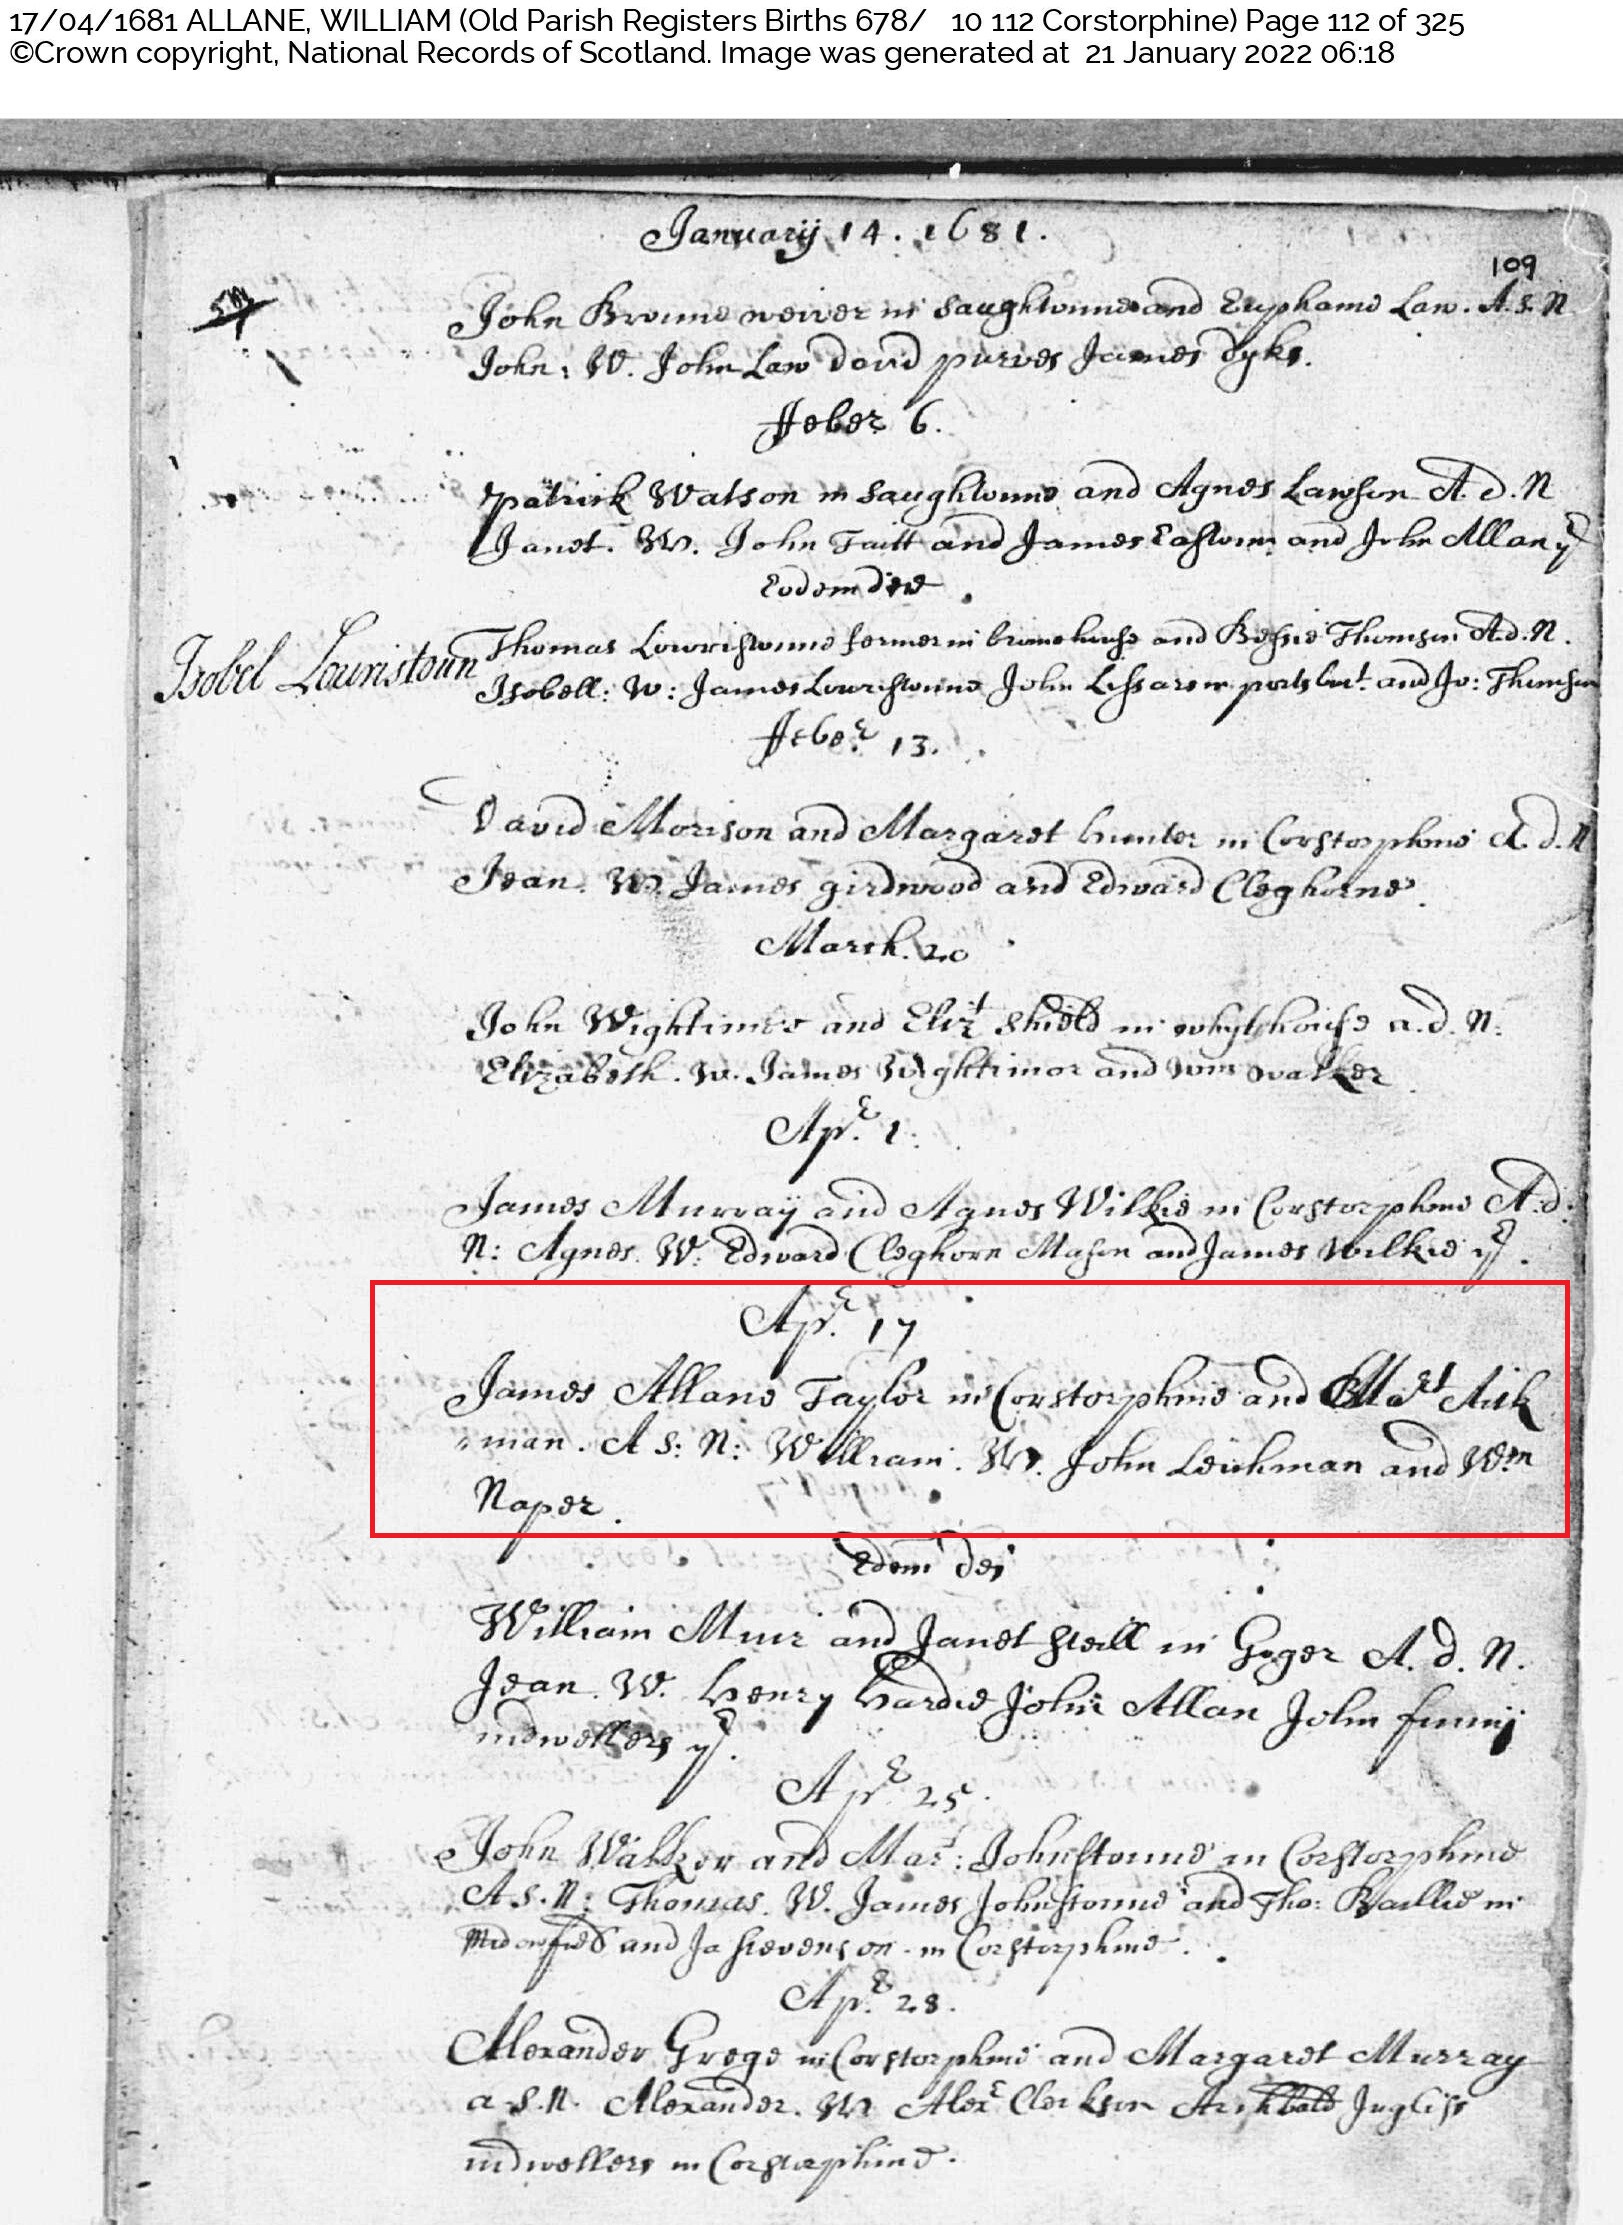 17/04/1681 ALLANE, WILLIAM (Old Parish Registers Births 678/ 10 112 Corstorphine) Page 112 of 325
©Crown copyright, National Records of Scotland. Image was generated at 21 January 2022 06:18
Januarij 14. 1681.
109
John Broune weiver in Saughtoune and Euphame Law. A.S.N
John: W. John Law David purves James Dyks.
ffeber 6.
Patrick Watson in Saughtoune and Agnes Lawson A.d.N
Janet. W. John Taitt and James Eastoun and John Allan yr
Eodem die
Isobel Louristoun
Thomas Lowristoune fermer in brumehouse and Bessie Thomson A.d.N.
Isobell: W: James Lowristoune John and Jo: Thomson
ffeber 13.
David Morison and Margaret hunter in Corstorphine A.d.N
Jean. W. James girdwood and Edward Cleghorne.
March. 20
John and Elizt Shield in whythouse a.d.N:
Elizabeth. W. James and Wm Walker
Apr. 1.
James Murray and Agnes Wilkie in Corstorphine A.d:
N: Agnes. W: Edward Cleghorn Mason and James Wilkie yr.
Apr. 17
James Allane Taylor in Corstorphine and Mart Aik
man. A S: N: William. W. John Leichman and Wm
Naper.
Edem die
William Muir and Janet Steill in Goger A.d.N.
Jean. W. Henry Hardie John Allan John finnij
indwellers yr.
Apr. 25.
John Walker and Mar: Johnstoune in Corstorphine
A.S.N: Thomas. W. James Johnstoune and Tho: Baillie in
and Ja Stevenson in Corstorphine.
Apr. 28.
Alexander Grege in Corstorphine and Margaret Murray
a.S.N. Alexander. W Alexr Clerkson Archbald Ingliss
indwellers in Corstorphine.